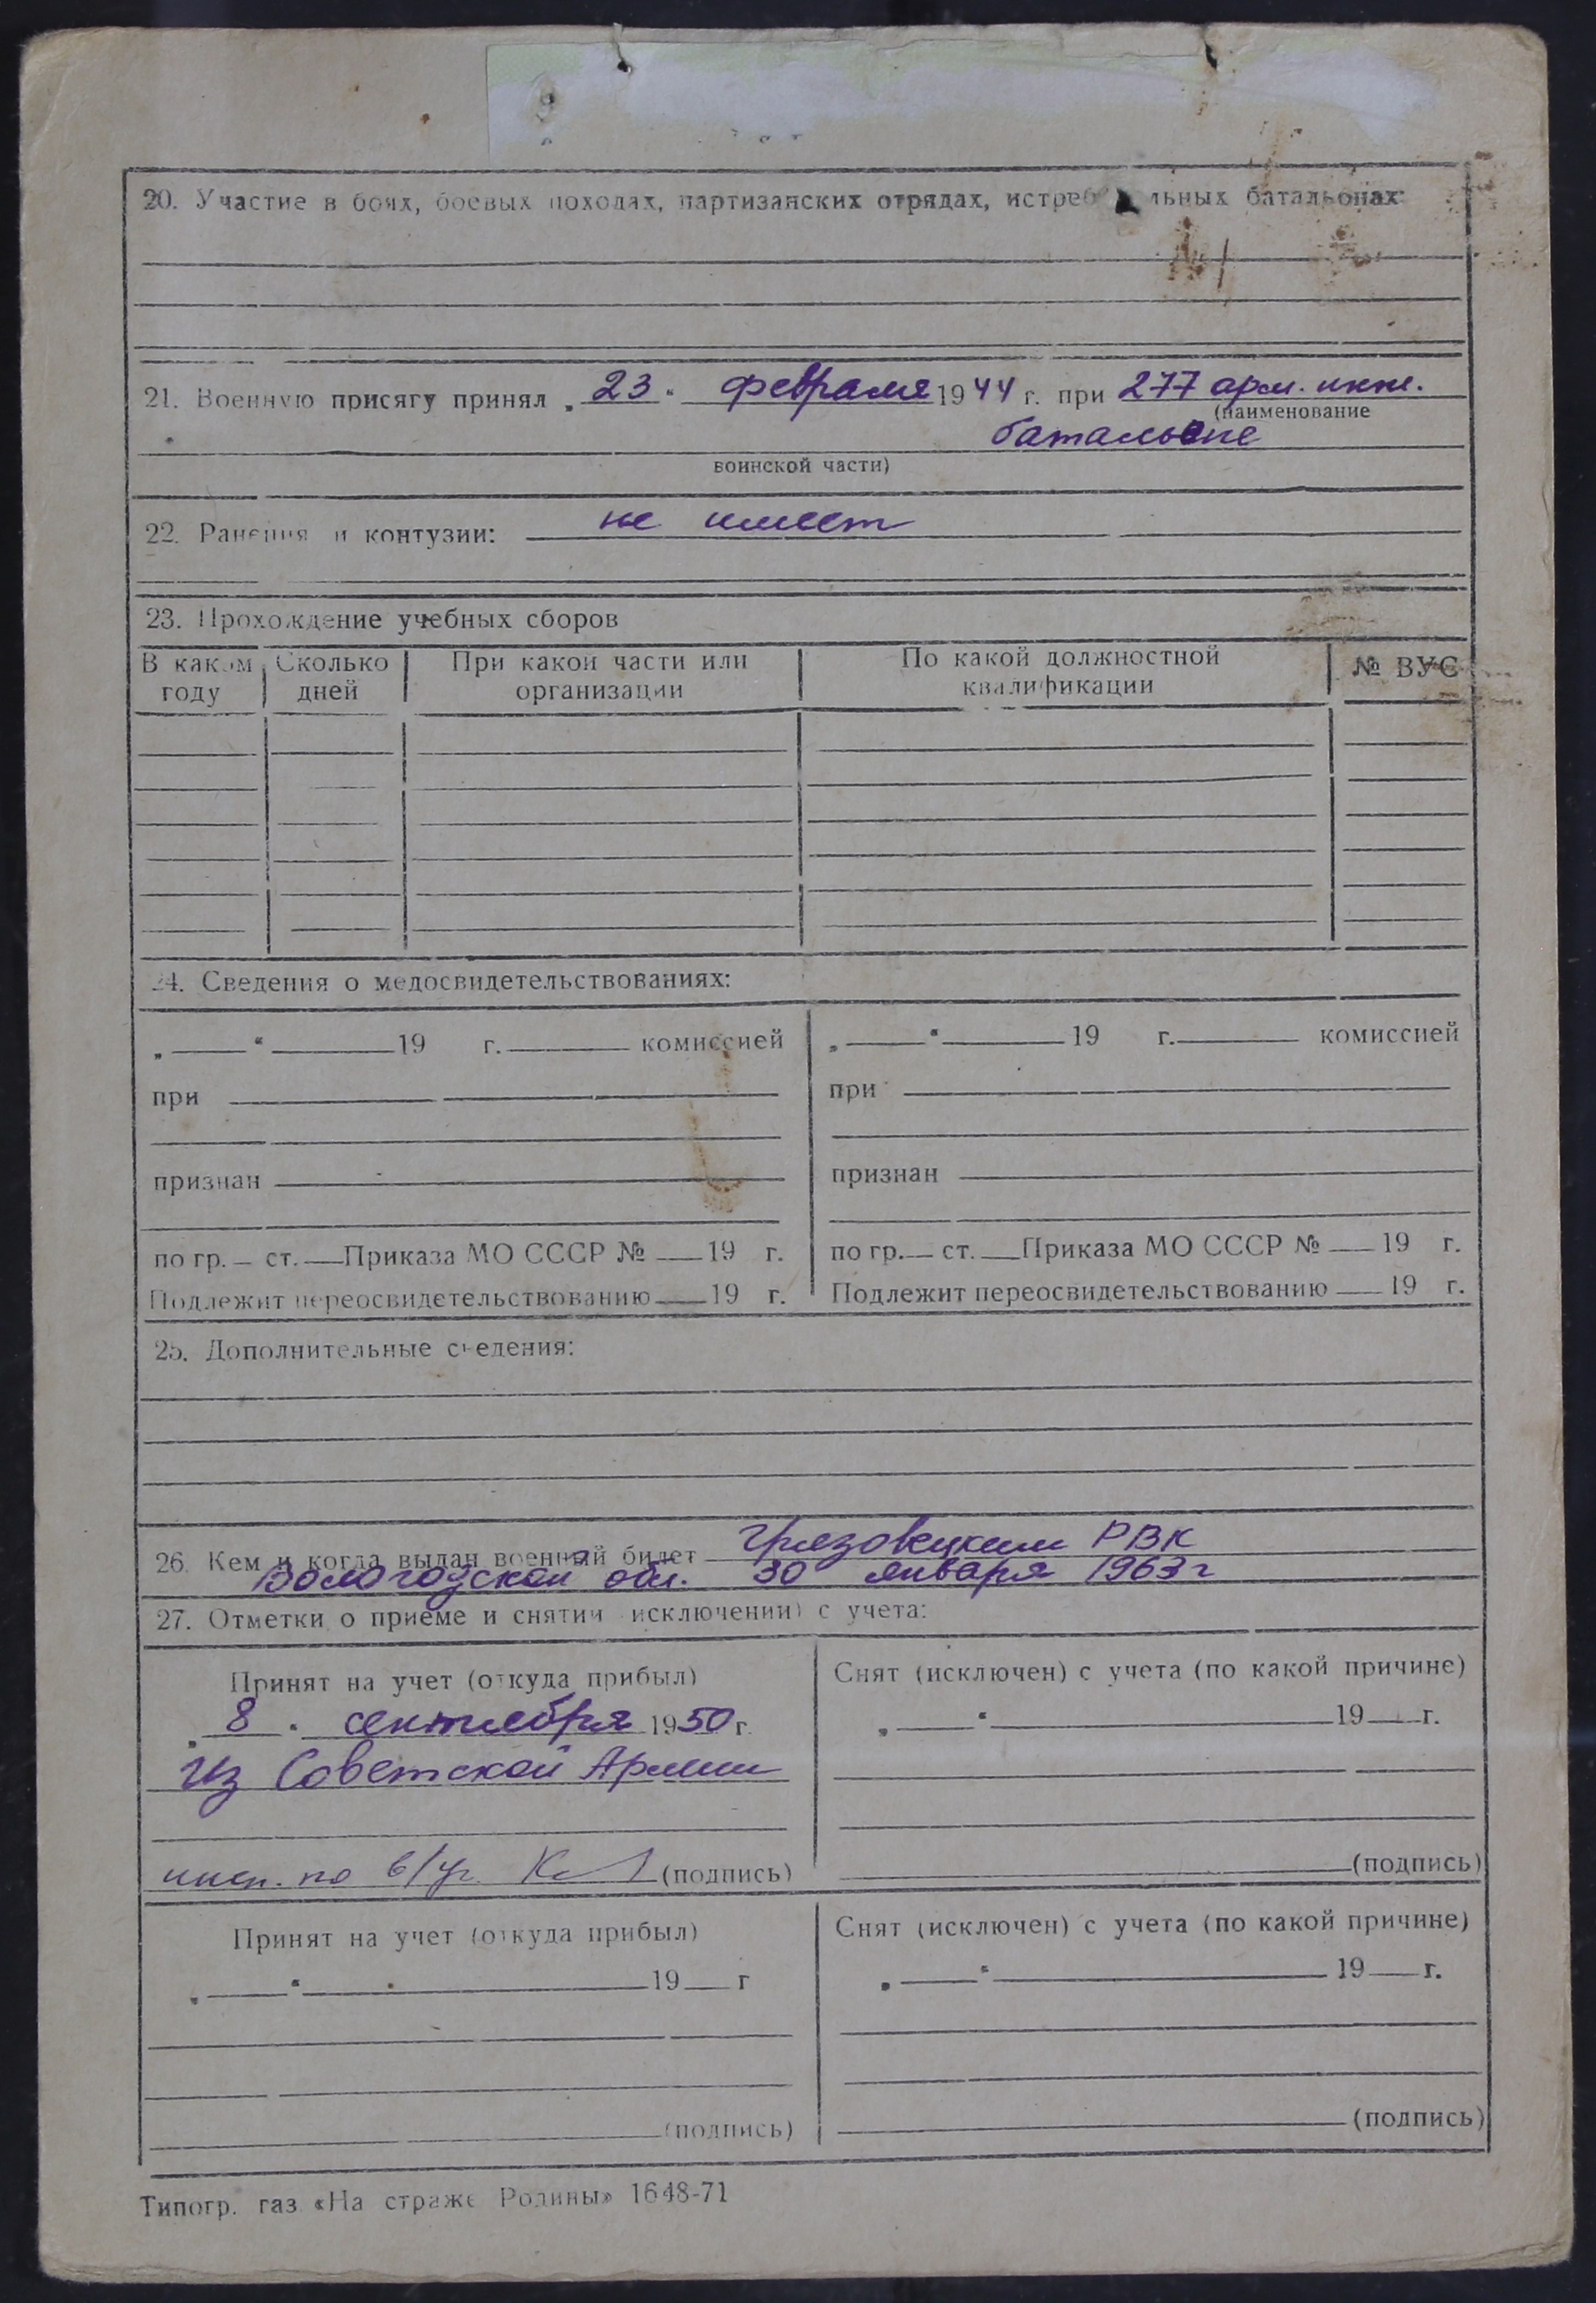 20. Участие в боях, боевых походах, партизанских отрядах, истреб льных батальонах:
21. Военную присягу принял „ 23 " февраля 1944 г. при 277 арм. инж.
(наименование
батальоне
воинской части)
22. Ранения и контузии: не имеет
23. Прохождение учебных сборов
В каком году Сколько дней При какой части или организации По какой должностной квалификации № ВУС
24. Сведения о медосвидетельствованиях:
„ " 19 г. комиссией „ " 19 г. комиссией
при при
признан признан
по гр. ст. Приказа МО СССР № 19 г. по гр. ст. Приказа МО СССР № 19 г.
Подлежит переосвидетельствованию 19 г. Подлежит переосвидетельствованию 19 г.
25. Дополнительные сведения:
26. Кем и когда выдан военный билет Грязовецким РВК
Вологодской обл. 30 января 1963 г
27. Отметки о приеме и снятии исключении) с учета:
Принят на учет (откуда прибыл) Снят (исключен) с учета (по какой причине)
„ 8 " сентября 1950 г. „ " 19 г.
из Советской Армии
инсп. по в/уч. (подпись) (подпись)
Принят на учет (откуда прибыл) Снят (исключен) с учета (по какой причине)
„ " 19 г „ " 19 г.
(подпись) (подпись)
Типогр. газ. «На страже Родины» 1648-71